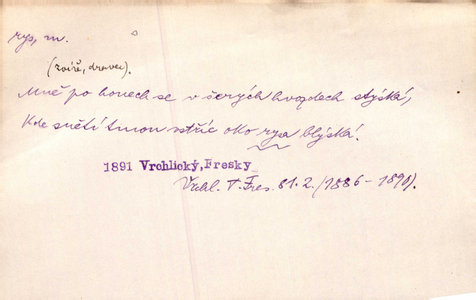 rys, m.
(zvíře, dravec).
Mně po honech se v šerých hvozdech stýská,
Kde snětí tmou vstříc oko rysa blýská.
1891 Vrchlický, Fresky
Vrchl. T. Fres. 81. 2. (1886-1890).